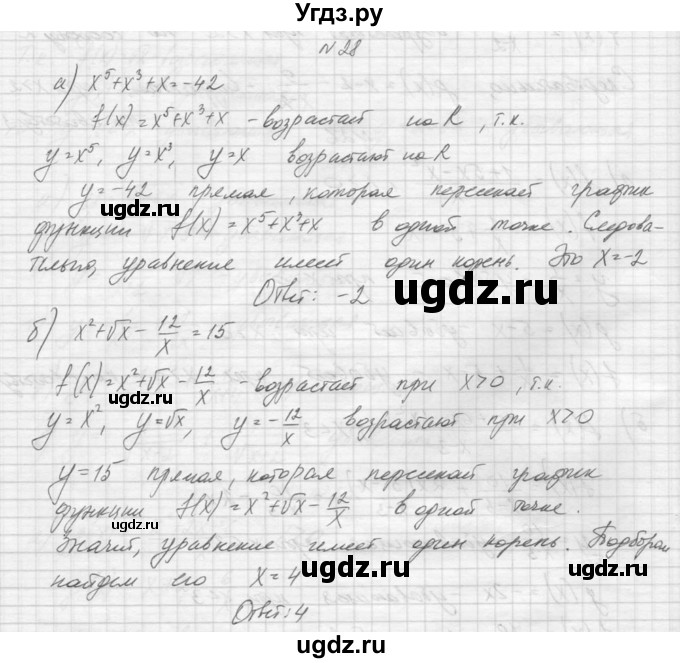 Угдз.ру
№28
а) x⁵+x³+x=-42
f(x)=x⁵+x³+x - возрастает на R, т.к.
y=x⁵, y=x³, y=x возрастают на R
y=-42 прямая, которая пересекает график
функции f(x)=x⁵+x³+x в одной точке. Следова-
тельно, уравнение имеет один корень. Это x=-2
Ответ: -2
б) x²+√x-12/x=15
f(x)=x²+√x-12/x - возрастает при x>0, т.к.
y=x², y=√x, y=-12/x возрастают при x>0
y=15 прямая, которая пересекает график
функции f(x)=x²+√x-12/x в одной точке.
Значит, уравнение имеет один корень. Подбором
найдем его x=4
Ответ: 4
ugdz.ru
ugdz.ru
ugdz.ru
ugdz.ru
ugdz.ru
ugdz.ru